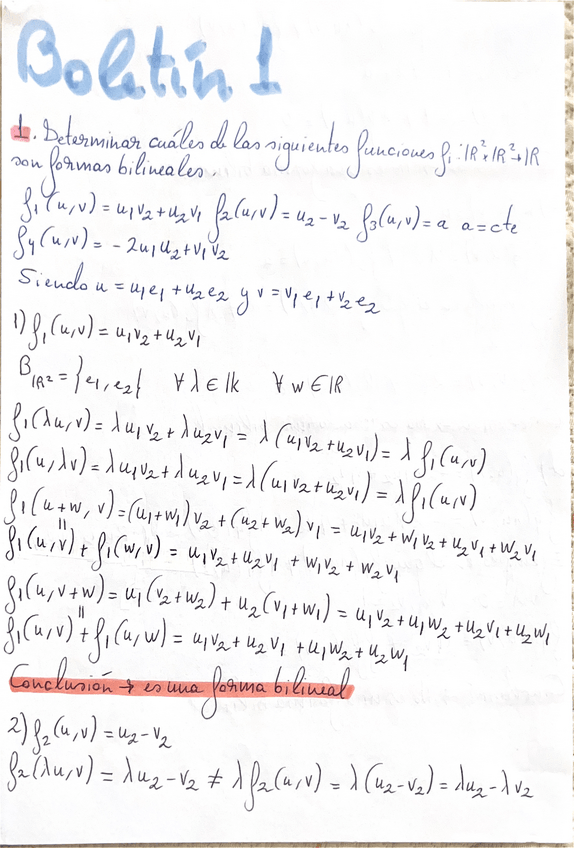 Boletín 1
1. Determinar cuáles de las siguientes funciones f₁: ℝ²×ℝ²→ℝ
son formas bilineales.
f₁(u,v) = u₁v₂+u₂v₁ f₂(u,v) = u₂-v₂ f₃(u,v) = a a=cte
f₄(u,v) = -2u₁u₂+v₁v₂
Siendo u = u₁e₁+u₂e₂ y v = v₁e₁+v₂e₂
1) f₁(u,v) = u₁v₂+u₂v₁
B_{ℝ²} = {e₁,e₂} ∀λ∈𝕜 ∀w∈ℝ
f₁(λu,v) = λu₁v₂+λu₂v₁ = λ(u₁v₂+u₂v₁) = λ f₁(u,v)
f₁(u,λv) = λu₁v₂+λu₂v₁ = λ(u₁v₂+u₂v₁) = λf₁(u,v)
f₁(u+w, v) = (u₁+w₁)v₂+(u₂+w₂)v₁ = u₁v₂+w₁v₂+u₂v₁+w₂v₁
||
f₁(u,v)+f₁(w,v) = u₁v₂+u₂v₁+w₁v₂+w₂v₁
f₁(u,v+w) = u₁(v₂+w₂)+u₂(v₁+w₁) = u₁v₂+u₁w₂+u₂v₁+u₂w₁
||
f₁(u,v)+f₁(u,w) = u₁v₂+u₂v₁+u₁w₂+u₂w₁
Conclusión → es una forma bilineal
2) f₂(u,v) = u₂-v₂
f₂(λu,v) = λu₂-v₂ ≠ λf₂(u,v) = λ(u₂-v₂) = λu₂-λv₂